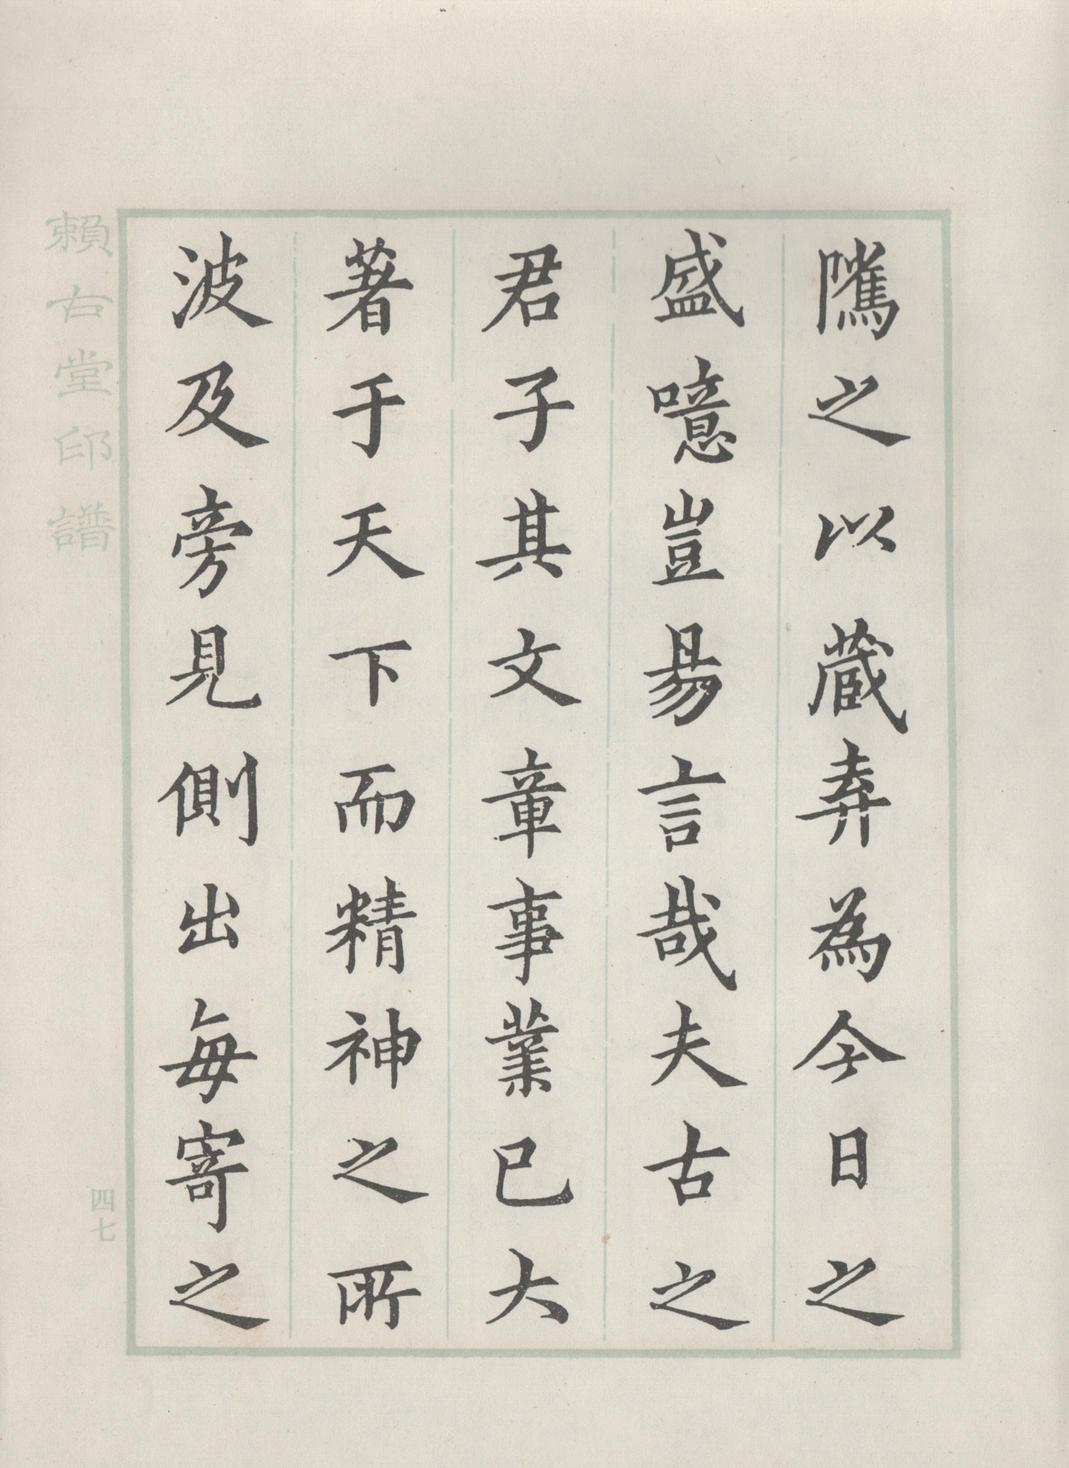 隲之以藏弆為今日之
盛噫豈易言哉夫古之
君子其文章事業已大
著于天下而精神之所
波及旁見側出每寄之
賴古堂印譜
四七